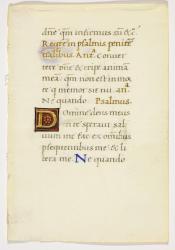 dñe qm̃ infirmus sũ & c̃
Requie in psalmus penitẽ
tialibus Anã. Conver
tere dñe & eripe animã
meam qm̃ non est in mor
te q̃ memor sit tui añ.
Ne quando Psalmus.
Domine deus meus
in te speravi sal
uum me fac ex omnibus
psequentibus me & li
bera me. Ne quando